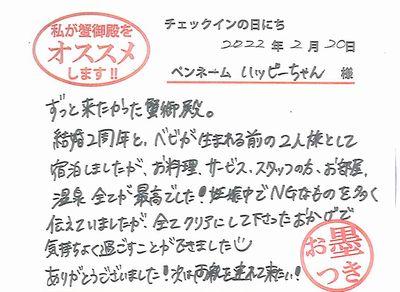 私が蟹御殿を
オススメ
します!!
チェックインの日にち
2022年2月20日
ペンネーム ハッピーちゃん 様
ずっと来たかった蟹御殿。
結婚2周年と、ベビが生まれる前の2人旅として
宿泊しましたが、お料理、サービス、スタッフの方、お部屋、
温泉 全てが最高でした!妊娠中でNGなものを多く
伝えていましたが、全てクリアにして下さったおかげで
気持ちよく過ごすことができました
ありがとうございました!次は両親を連れて来たい!
お墨
つき